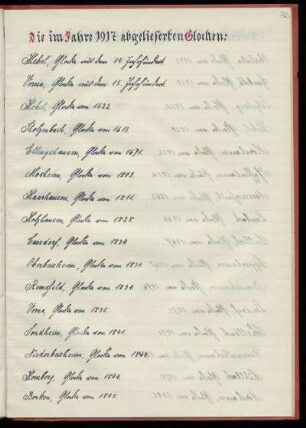 Die im Jahre 1917 abgelieferten Glocken:
Glocke aus dem 14. Jahrhundert
Verna, Glocke aus dem 15. Jahrhundert
Glocke von 1522.
Stolzenbach, Glocke von 1613.
Ellingshausen, Glocke von 1671.
Glocke von 1803.
Haarhausen, Glocke von 1811.
Holzhausen, Glocke von 1828.
Glocke von 1834
Oberbeisheim, Glocke von 1834
Remsfeld, Glocke von 1834.
Verna, Glocke von 1835.
Sondheim, Glocke von 1841.
Niederbeisheim, Glocke von 1845.
Homberg, Glocke von 1844.
Borken, Glocke von